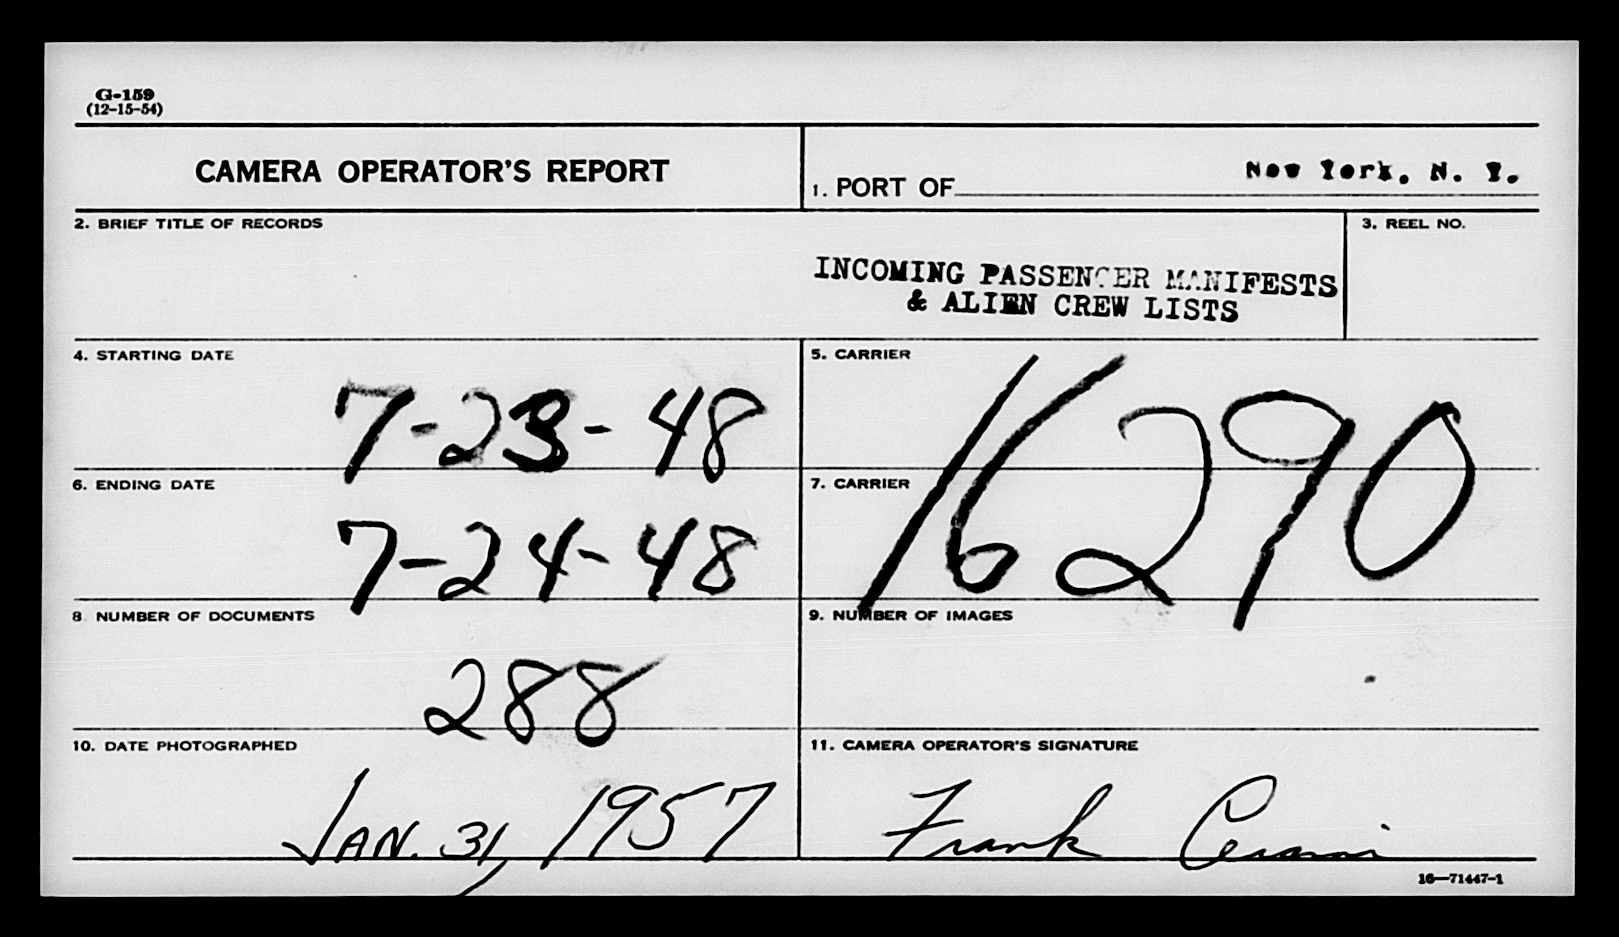 G-159
(12-15-54)
CAMERA OPERATOR'S REPORT
1. PORT OF New York, N. Y.
2. BRIEF TITLE OF RECORDS
3. REEL NO.
INCOMING PASSENGER MANIFESTS
& ALIEN CREW LISTS
4. STARTING DATE
7-23-48
5. CARRIER
16290
6. ENDING DATE
7-24-48
7. CARRIER
8 NUMBER OF DOCUMENTS
288
9. NUMBER OF IMAGES
10. DATE PHOTOGRAPHED
JAN. 31, 1957
11. CAMERA OPERATOR'S SIGNATURE
Frank
16—71447-1